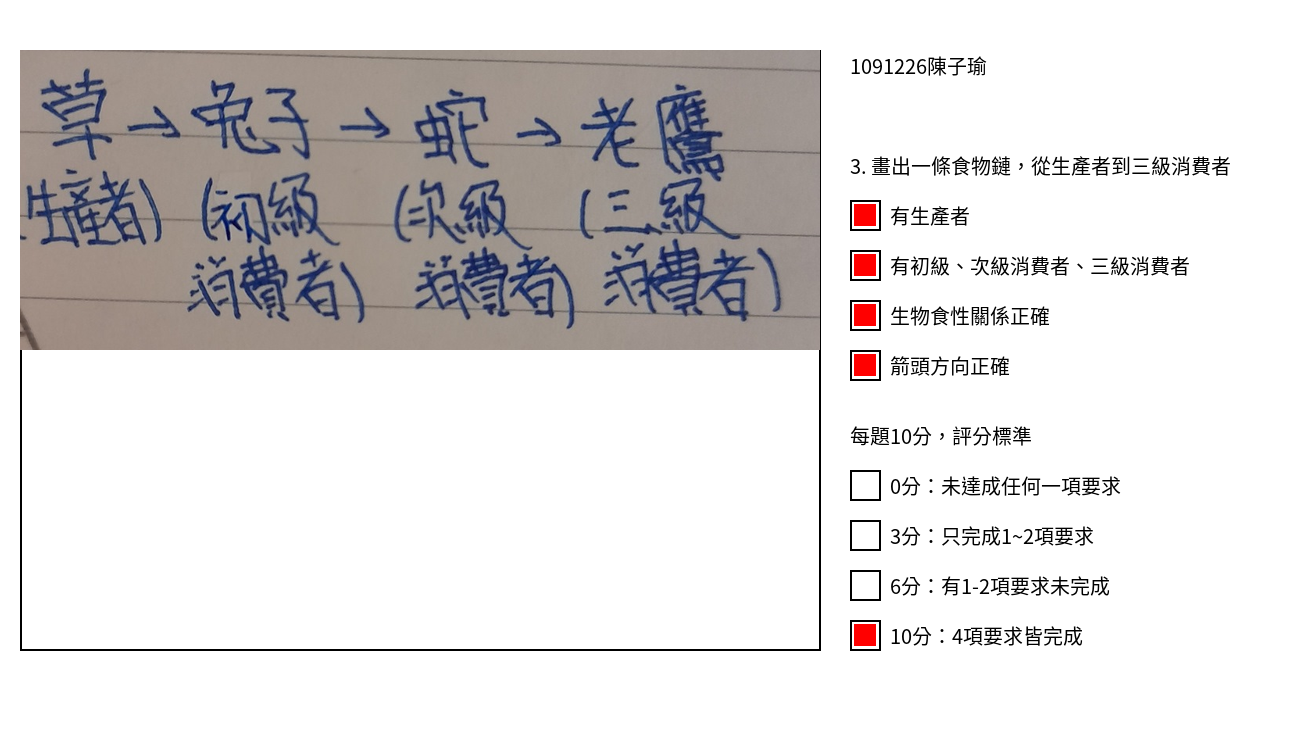 草→兔子→蛇→老鷹
生產者) (初級 (次級 (三級
消費者) 消費者) 消費者)
1091226陳子瑜
3. 畫出一條食物鏈，從生產者到三級消費者
有生產者
有初級、次級消費者、三級消費者
生物食性關係正確
箭頭方向正確
每題10分，評分標準
0分：未達成任何一項要求
3分：只完成1~2項要求
6分：有1-2項要求未完成
10分：4項要求皆完成